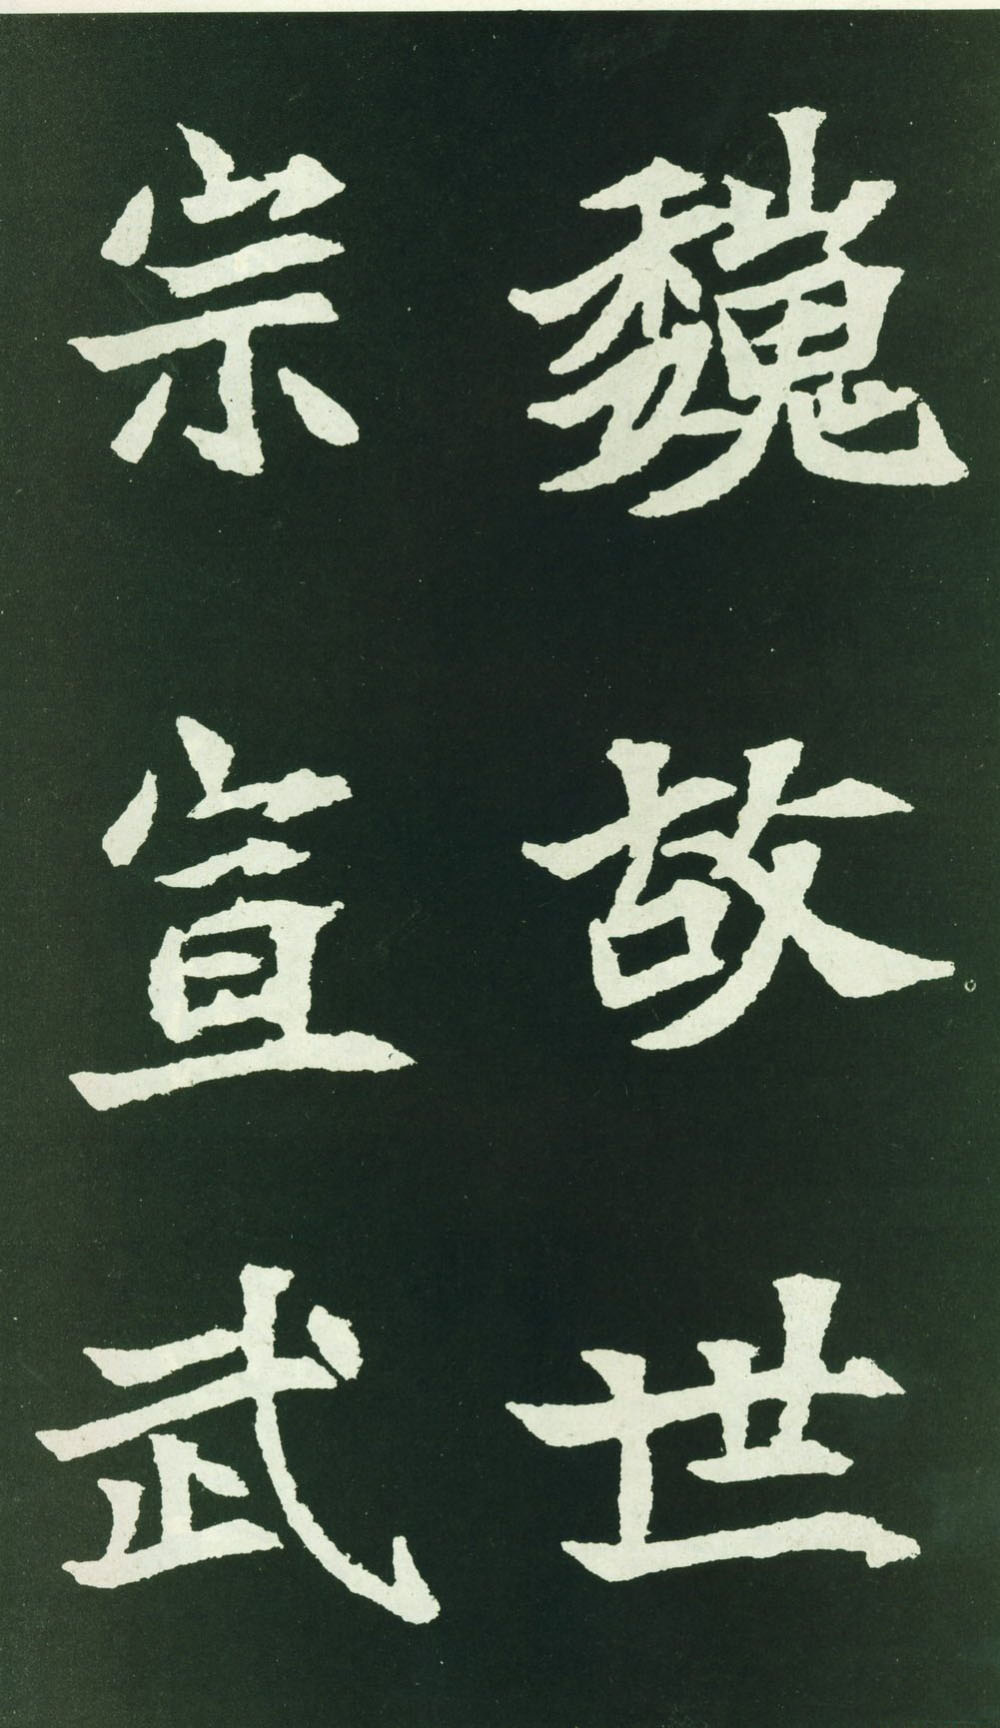 魏故世
宗宣武